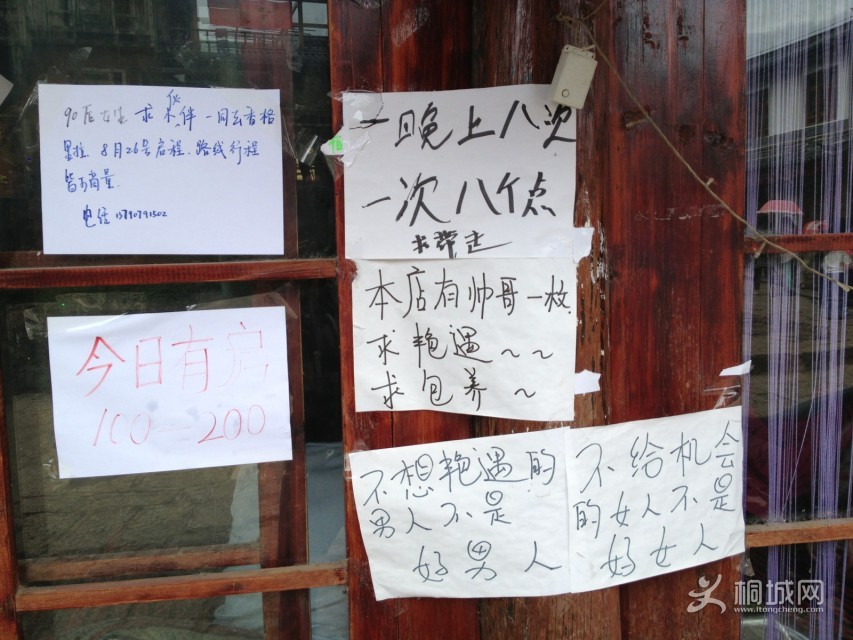 90后女生 求伙伴 一同去香格
里拉 8月26号启程、路线行程
皆可商量.
电话 15990791502
今日有房
100—200
一晚上八次
一次八个点
求带走
本店有帅哥一枚
求艳遇～～
求包养～
不想艳遇的
男人不是
好男人
不给机会
的女人不是
好女人
桐城网
www.itongcheng.com